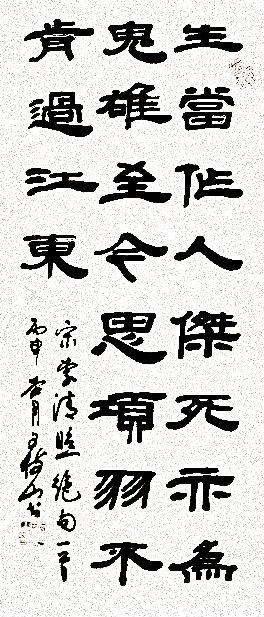 生當作人傑死亦為
鬼雄至今思項羽不
肯過江東
宋李清照絕句一首
丙申